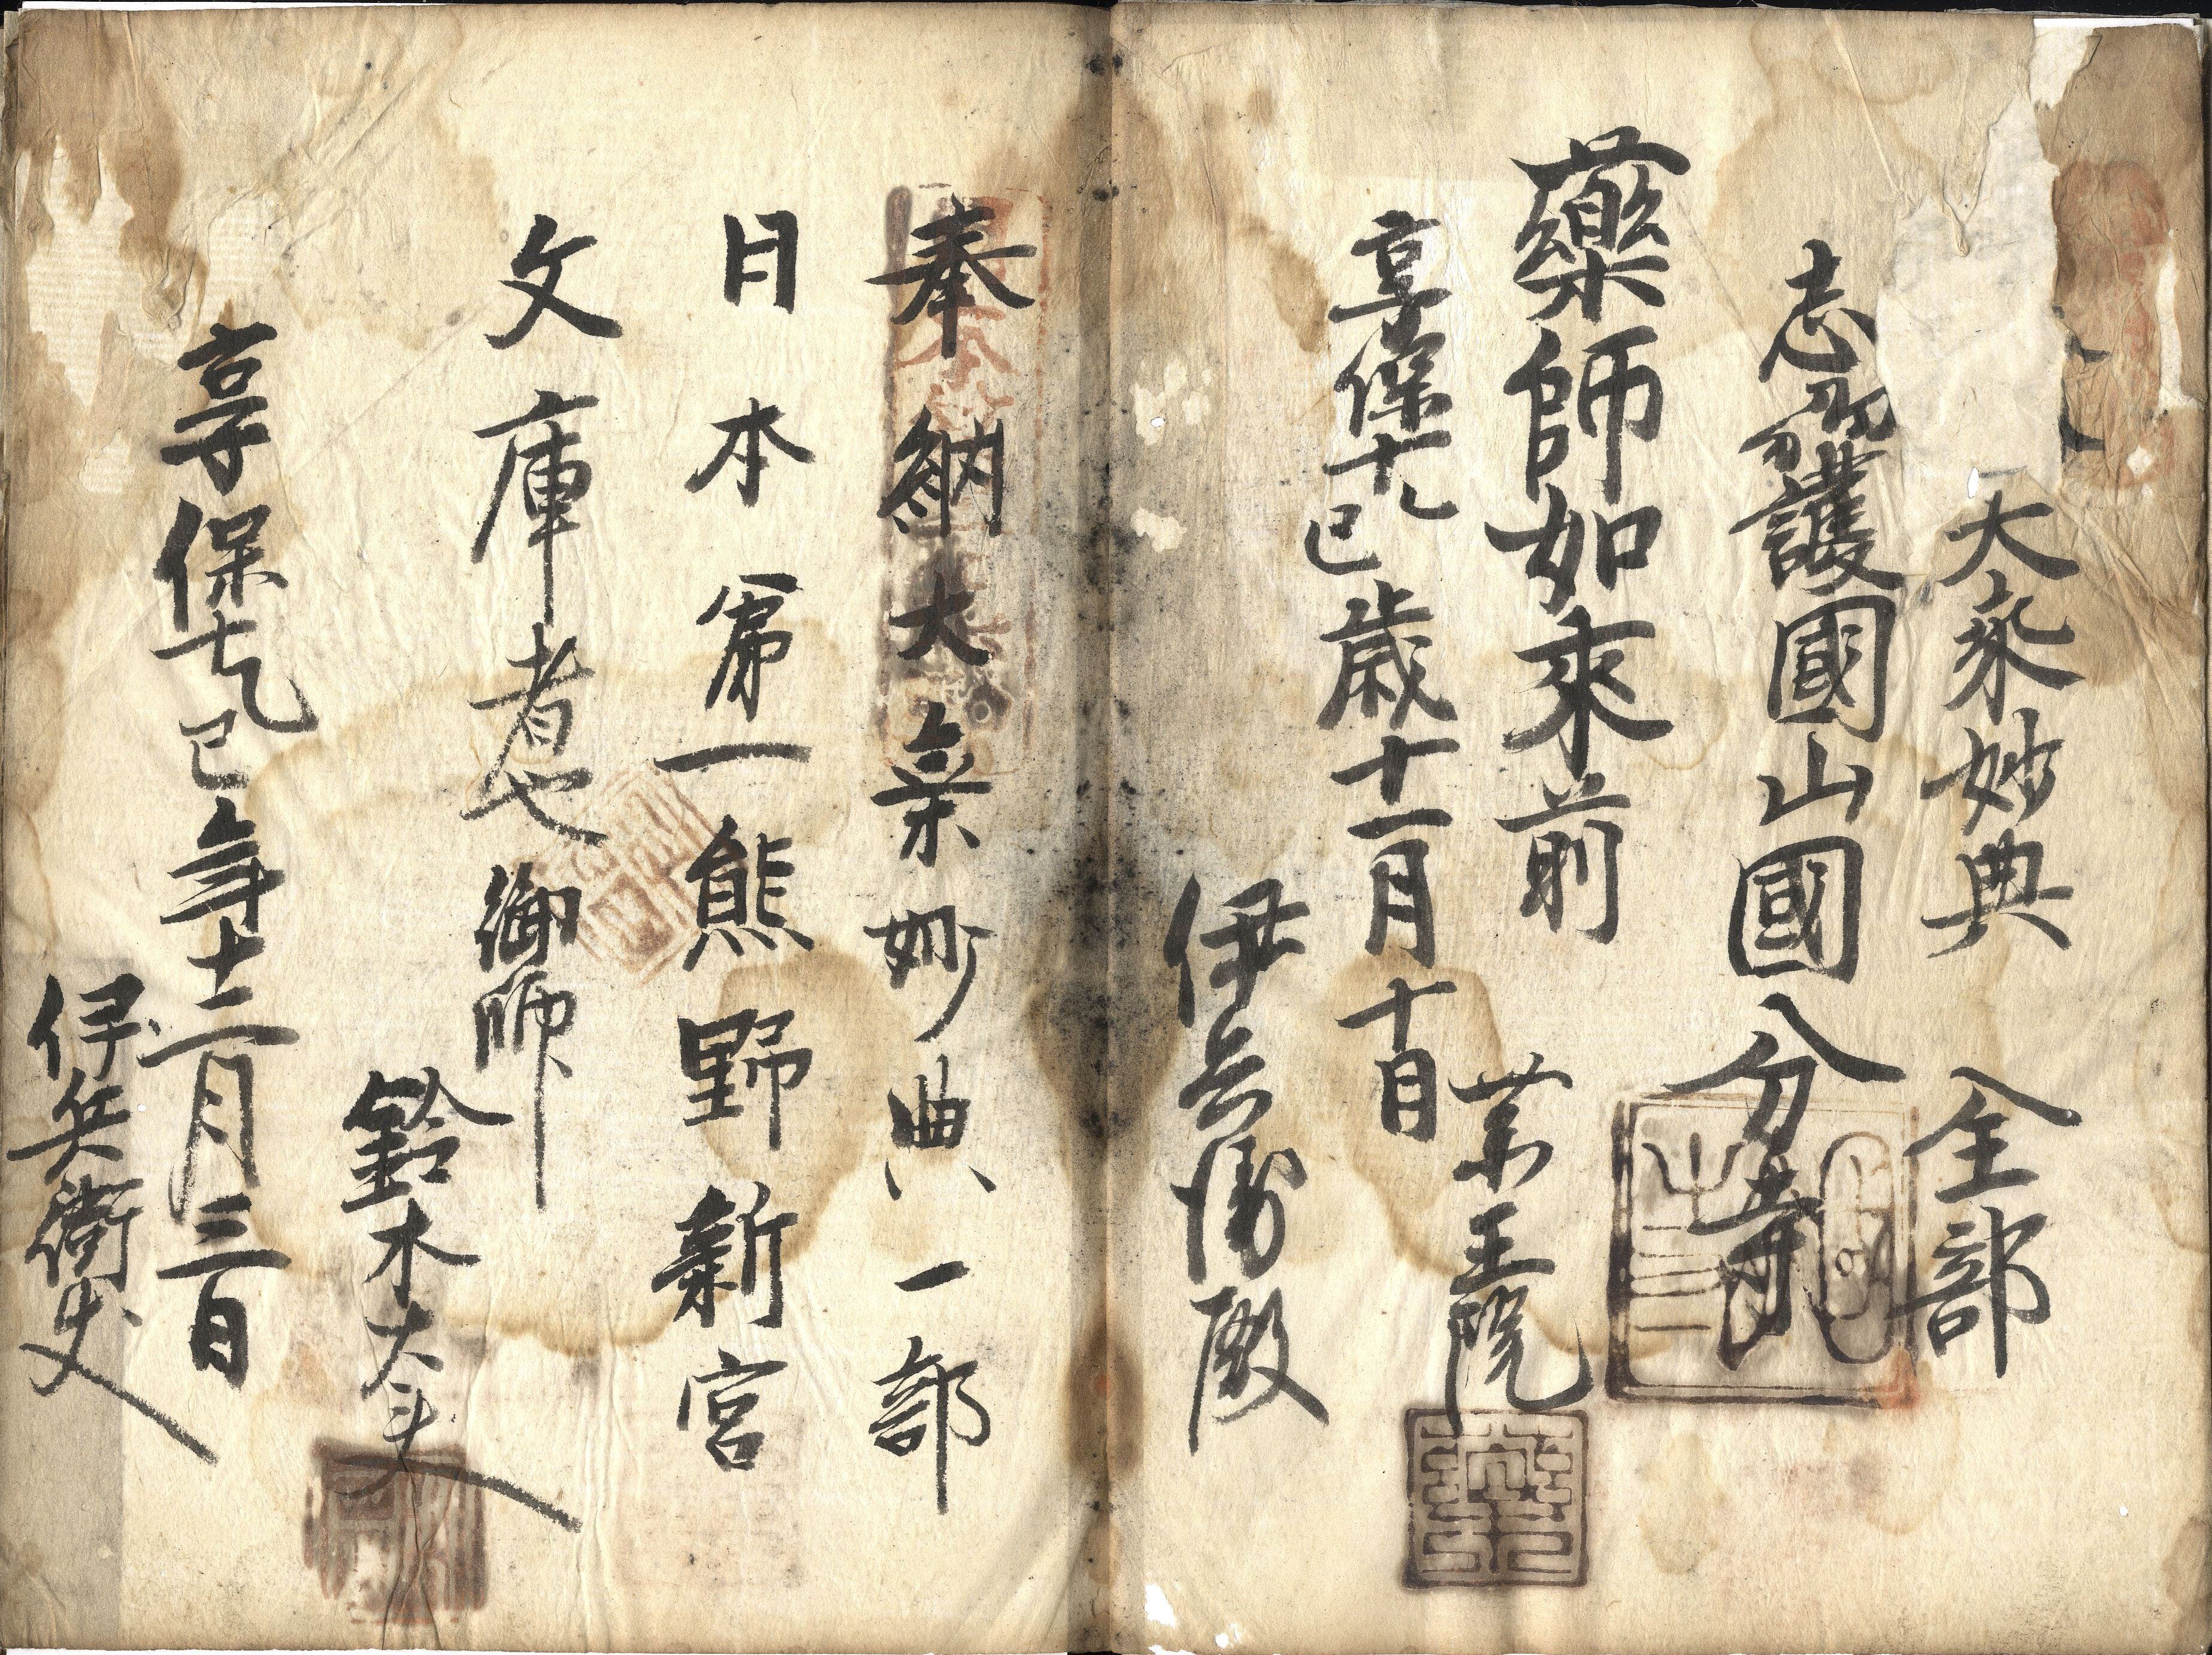 大乗妙典 全部
志 護國山國分寺
藥師如來前
薬王院
享保十九巳歳十一月十日
伊兵衛殿
奉納大乗妙典一部
日本第一熊野新宮
文庫者也 御師
鈴木大
享保十九巳年十二月三日
伊兵衛